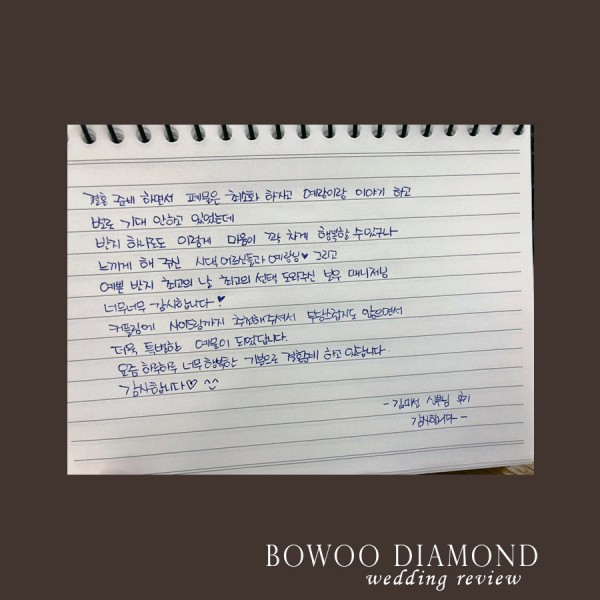 결혼 준비 하면서 패물은 최소화 하자고 예랑이랑 이야기 하고
별로 기대 안하고 있었는데
반지 하나로도 이렇게 마음이 꽉 차게 행복할 수 있구나
느끼게 해 주신 시댁 어르신들과 예랑님♥ 그리고
예쁜 반지 최고의 날 최고의 선택 도와주신 보우 매니저님
너무너무 감사합니다♥
커플링에 사이드까지 추천해주셔서 부담스럽지도 않으면서
더욱 특별한 예물이 되었답니다.
요즘 하루하루 너무 행복한 기분으로 결혼준비 하고 있답니다.
감사합니다♡ ^^
- 김미선 신부님 후기
감사합니다 -
BOWOO DIAMOND
wedding review